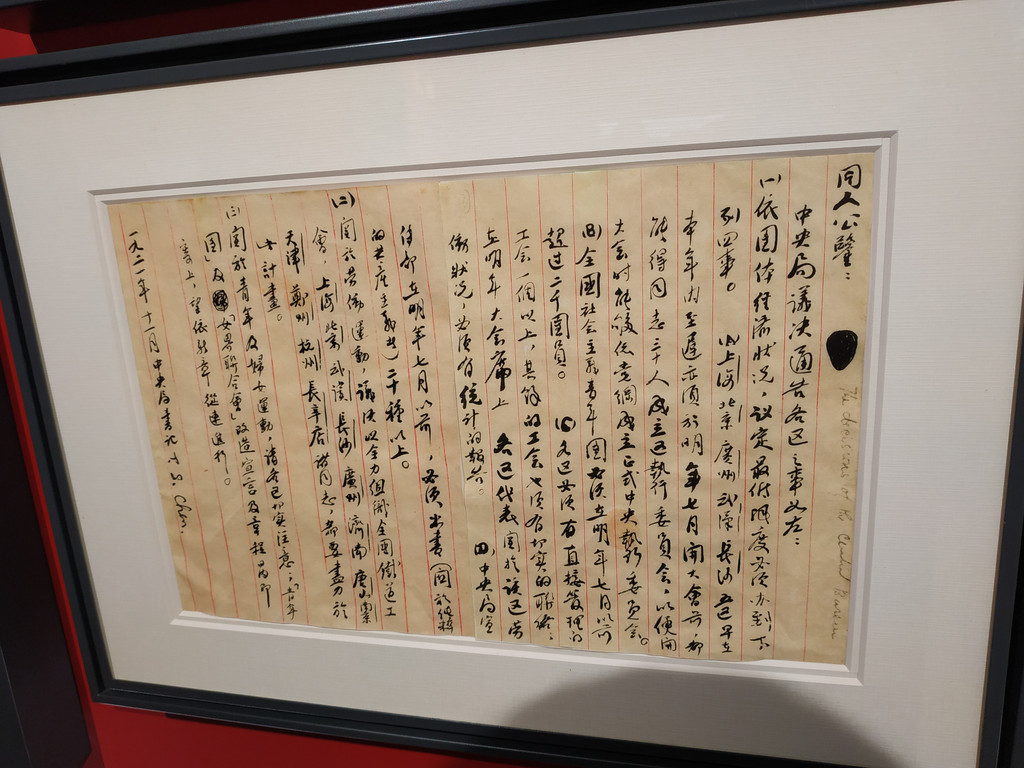 同人公鑒：
The decisions of the Central Bureau
中央局議决通告各区之事如左：
(一)依团体經济狀况，议定最低限度必须办到下
列四事。(A)上海北京廣州武漢長沙五区早在
本年内至遲亦須於明年七月開大會前都
能得同志三十人成立区執行委員会，以便開
大会时能够依党綱成立正式中央執行委員会。
(B)全國社会主義青年团必须在明年七月以前
超过二千團員。(C)各区必须有直接管理的
工会一個以上，其餘的工会也须有切实的联络；
在明年大会席上各区代表關於該区劳
働狀况必须有統計的報告。(D)中央局宣
傳部在明年七月以前，必须出書(關於纯粹
的共産主義者)二十種以上。
(二)關於劳働運動，議决以全力组織全國鐵道工
會，上海北京武漢長沙廣州濟南唐山南京
天津鄭州杭州長辛店諸同志，都要盡力於
此計畫。
(三)關於青年及婦女運動，請各区切实注意；「青年
团」及「女界聯合會」改造宣言及章程即
寄上，望依新章從速進行。
一九二一年十一月中央局書記 T. S. Chen.